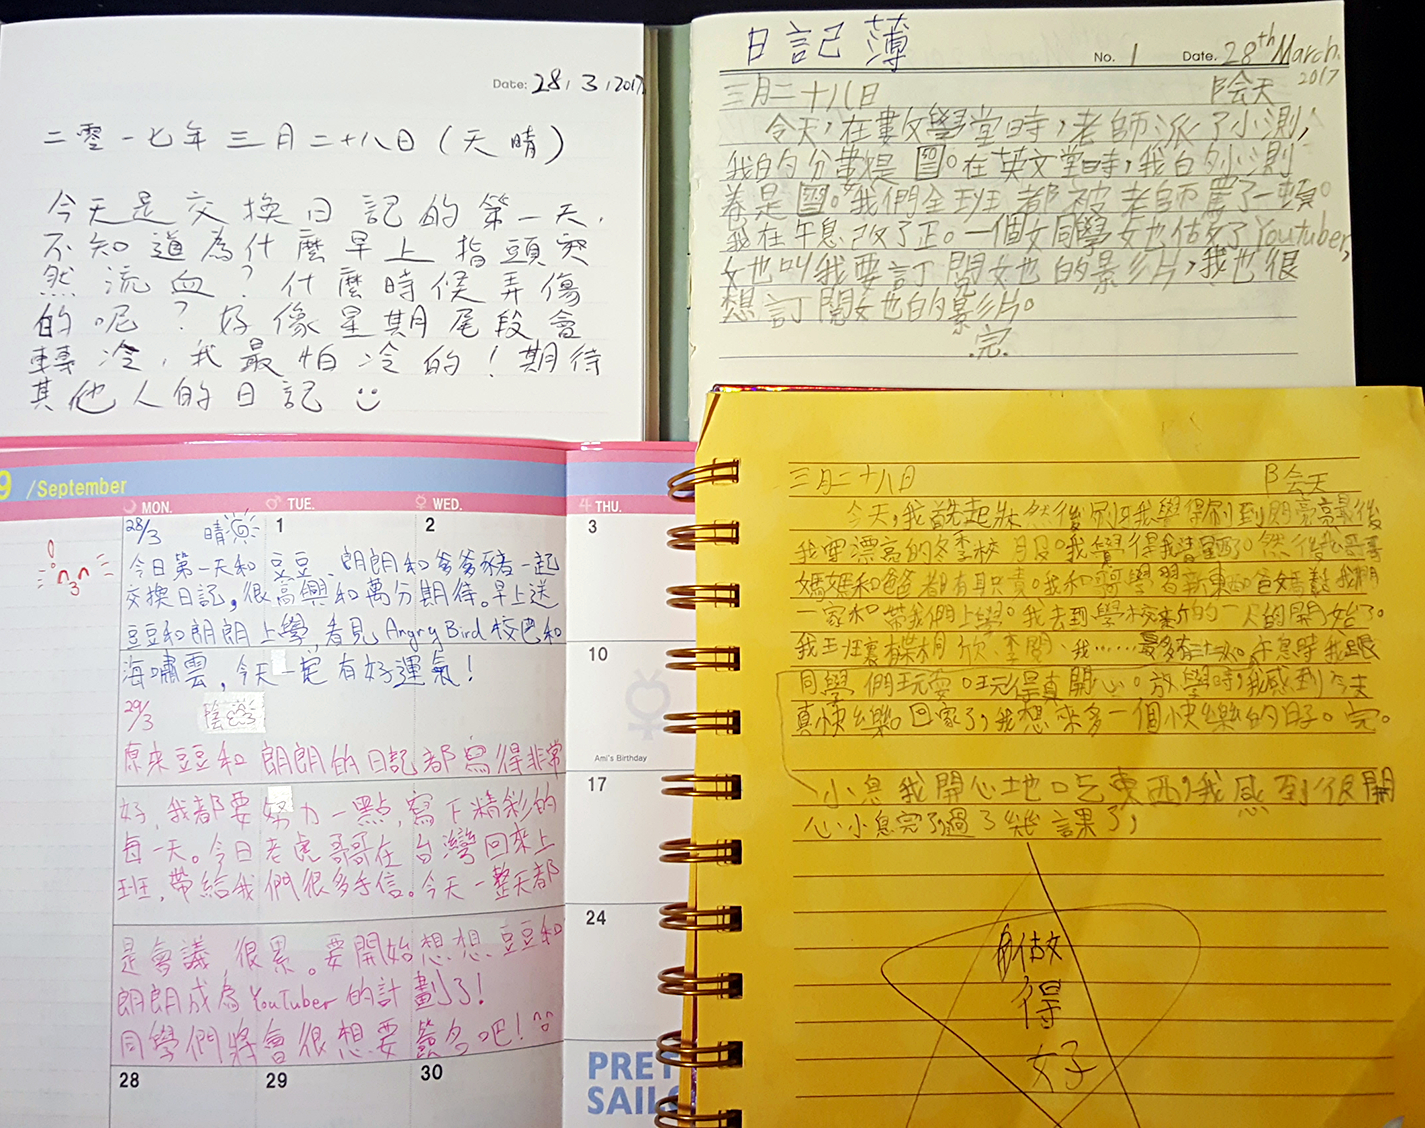 Date: 28.3.2017
二零一七年三月二十八日(天晴)
今天是交換日記的第一天,
不知道為什麼早上指頭突
然流血?什麼時候弄傷
的呢?好像星期尾段會
轉冷,我最怕冷的!期待
其他人的日記
日記薄
No. 1 Date. 28th March.
2017
三月二十八日 陰天
今天,在數學堂時,老師派了小測,
我的分數是。在英文堂時,我的小測
卷是。我們全班都被老師罵了一頓。
我在午息改了正。一個女同學她估多了Youtuber,
她叫我要訂閱她的影片,我也很
想訂閱她的影片。
完.
9 /September
MON. TUE. WED. THU.
28/3 晴 1 2 3
今日第一天和豆豆、朗朗和爸爸豬一起
交換日記,很高興和萬分期待。早上送
豆豆和朗朗上學,看見Angry Bird校巴和
海嘯雲,今天一定有好運氣!
10
Ami's Birthday
29/3 陰
原來豆豆和朗朗的日記都寫得非常
17
好,我都要努力一點,寫下精彩的
每一天。今日老虎哥哥在台灣回來上
班,帶給我們很多手信。今天一整天都
24
是會議 很累。要開始想想豆豆和
朗朗成為YouTuber的計劃了!
同學們將會很想要簽名吧!
28 29 30
PRET
SAIL
三月二十八日 陰天
今天,我首先起牀然後刷牙我學得刷到閃亮亮最後
我穿漂亮的冬季校服。我覺得我清醒了。然後我哥哥
媽媽和爸爸都有耳只責。我和哥學習新東西。爸媽
一家和帶我們上學。我去到學校新的一天的開始了。
午息時我跟
同學們玩耍。玩得真開心。放學時,我感到今天
真快樂。回家了,我想來多一個快樂的日子。完。
小息我開心地吃東西,我感到很開
心小息完了,過了幾課了,
做
得
好